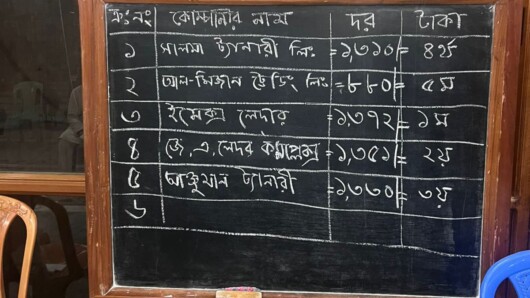 ক্রঃ নং কোম্পানীর নাম দর টাকা
১ সালমা ট্যানারী লিঃ =১,৩১০/= ৪র্থ
২ আল-মিজান ট্রেডিং লিঃ =৮৮০/= ৫ম
৩ ইমেক্স লেদার =১৩৭২/= ১ম
৪ জে, এ, লেদার কমপ্লেক্স =১,৩৫১/= ২য়
৫ আঞ্জুমান ট্যানারী =১,৩৩০/= ৩য়
৬